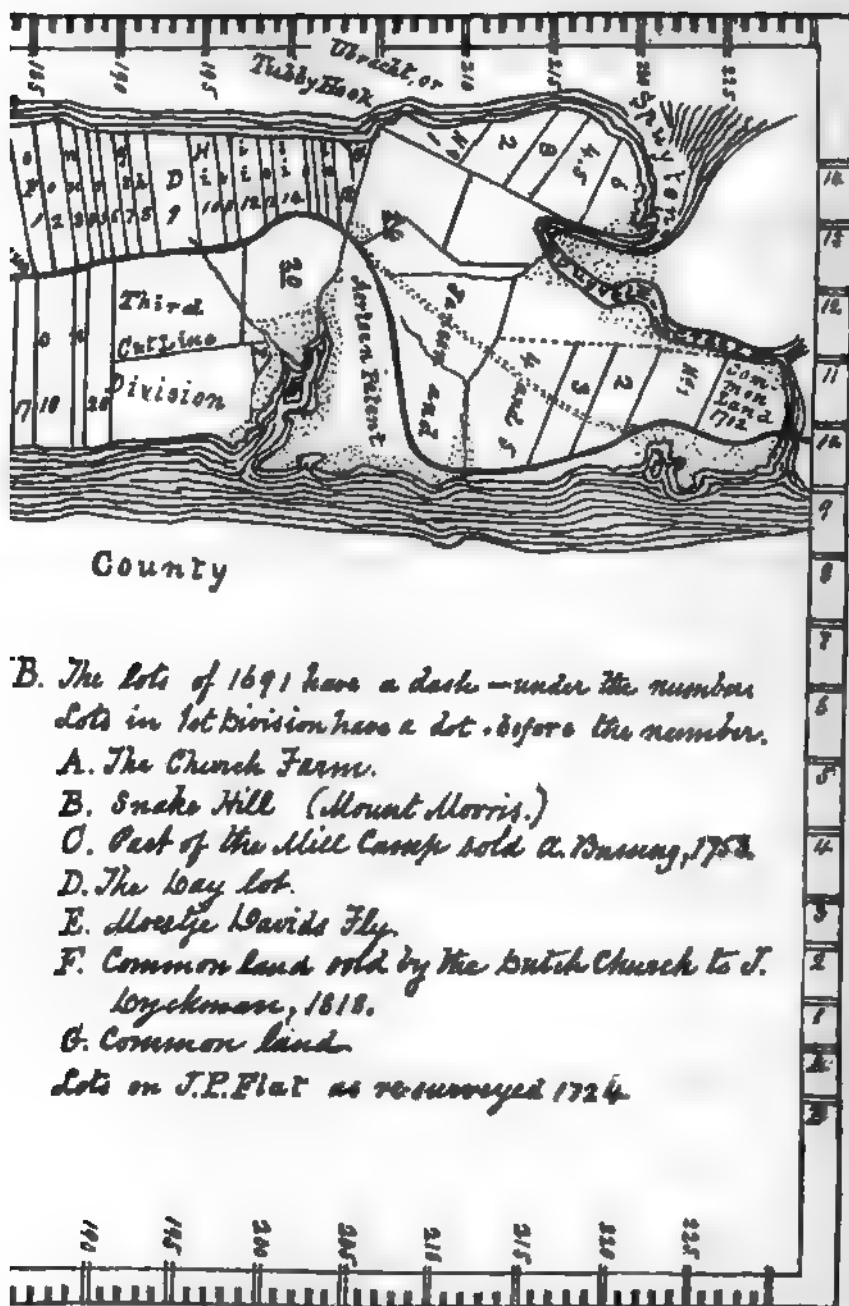 185
190
195
Tubby Hook
Ubrecht, or
210
215
220
225
Spuyten
No 1
2
3
4.5
6
Third
CutLine
Division
20
Aertsen Patent
26
and
4 and 5
3
2
No 1
Common
land
1712
17
18
20
14
13
12
11
10
9
8
7
6
5
4
3
2
1
County
B. The lots of 1691 have a dash — under the number
Lots in 1st Division have a dot . before the number.
A. The Church Farm.
B. Snake Hill (Mount Morris.)
C. Part of the Mill Camp sold A. Bussing, 1753.
D. The Day lot.
E. Moertje Davids Fly.
F. Common land sold by the Dutch Church to J.
Dyckman, 1818.
G. Common land.
Lots on J.P. Flat as re-surveyed 1724
190
195
200
205
210
215
220
225